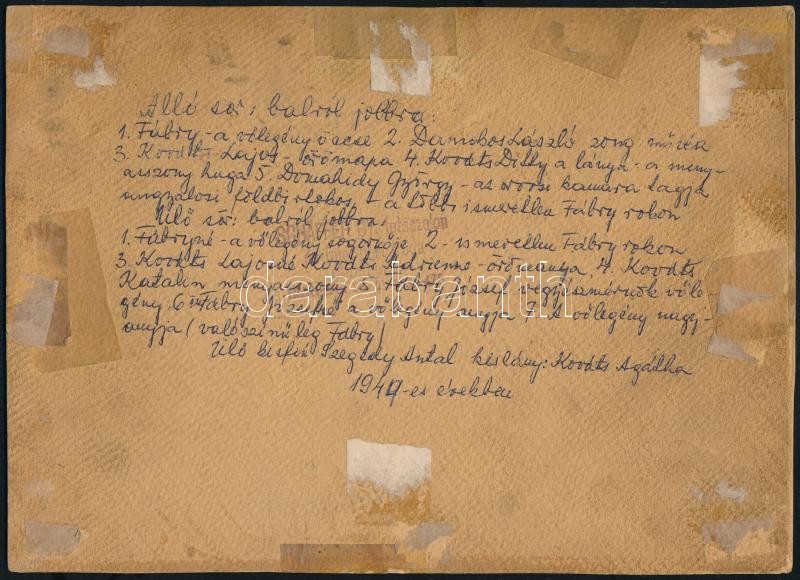 Álló sor: balról jobbra:
1. Fábry - a vőlegény öccse 2. Damokos László zong. művész
3. Kováts Lajos - örömapa 4. Kováts Dilly a lánya - a meny-
asszony huga 5. Domahidy György - az orvosi kamara tagja
földbirtokos, - a többi ismeretlen Fábry rokon
Ülő sor: balról jobbra:
1. Fábryné - a vőlegény sógornője 2 - ismeretlen Fábry rokon
3. Kováts Lajosné Kováts Adrienne - örömanya, 4. Kováts
Katalin menyasszony 5. Fábry József vegyészmérnök vőle-
gény 6 Fábry a vőlegény anyja 7. A vőlegény nagy-
anyja (valószinüleg Fábry)
Ülő kisfiú Szegedy Antal kislány: Kováts Agátha
194 -es években
darabanth